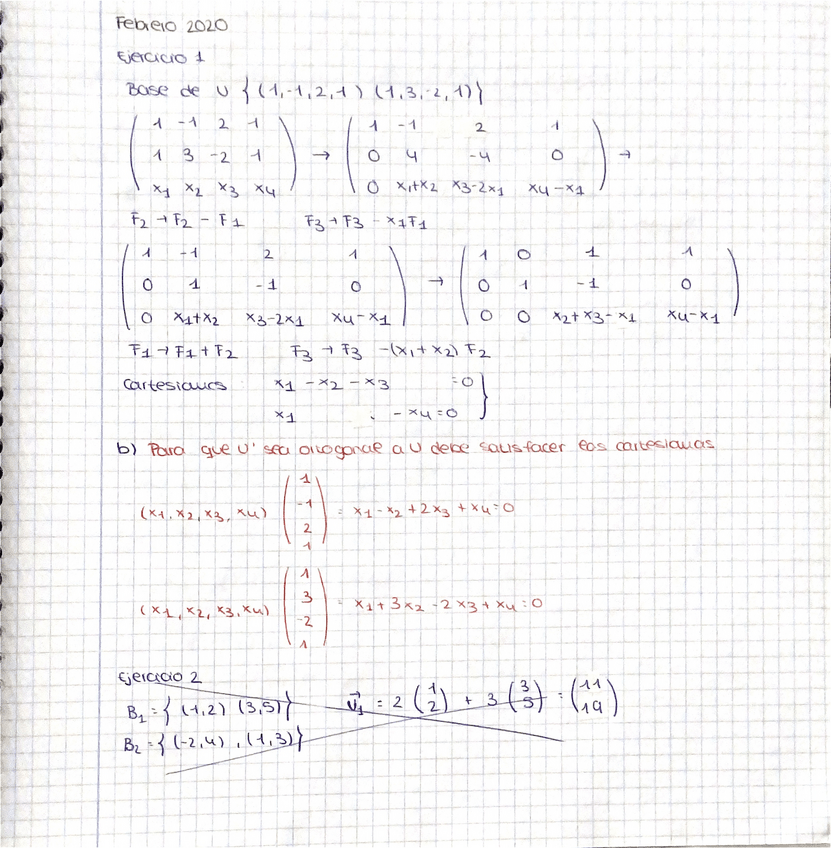 Febrero 2020
Ejercicio 1
Base de U { (1,-1,2,1) (1,3,-2,1) }
( 1 -1 2 1 ) → ( 1 -1 2 1 ) →
( 1 3 -2 1 ) ( 0 4 -4 0 )
( x1 x2 x3 x4 ) ( 0 x1+x2 x3-2x1 x4-x1 )
F2 → F2 - F1 F3 → F3 - x1F1
( 1 -1 2 1 ) → ( 1 0 1 1 )
( 0 1 -1 0 ) ( 0 1 -1 0 )
( 0 x1+x2 x3-2x1 x4-x1 ) ( 0 0 x2+x3-x1 x4-x1 )
F1 → F1 + F2 F3 → F3 -(x1+x2) F2
Cartesianas x1 - x2 - x3 = 0 }
x1 - x4 = 0
b) Para que U' sea ortogonal a U debe satisfacer las cartesianas
(x1, x2, x3, x4) (1 -1 2 1) = x1 - x2 + 2x3 + x4 = 0
(x1, x2, x3, x4) (1 3 -2 1) = x1 + 3x2 - 2x3 + x4 = 0
Ejercicio 2
B1 = { (1,2) (3,5) } v1 = 2 (1 2) + 3 (3 5) = (11 19)
B2 = { (-2,4) , (1,3) }